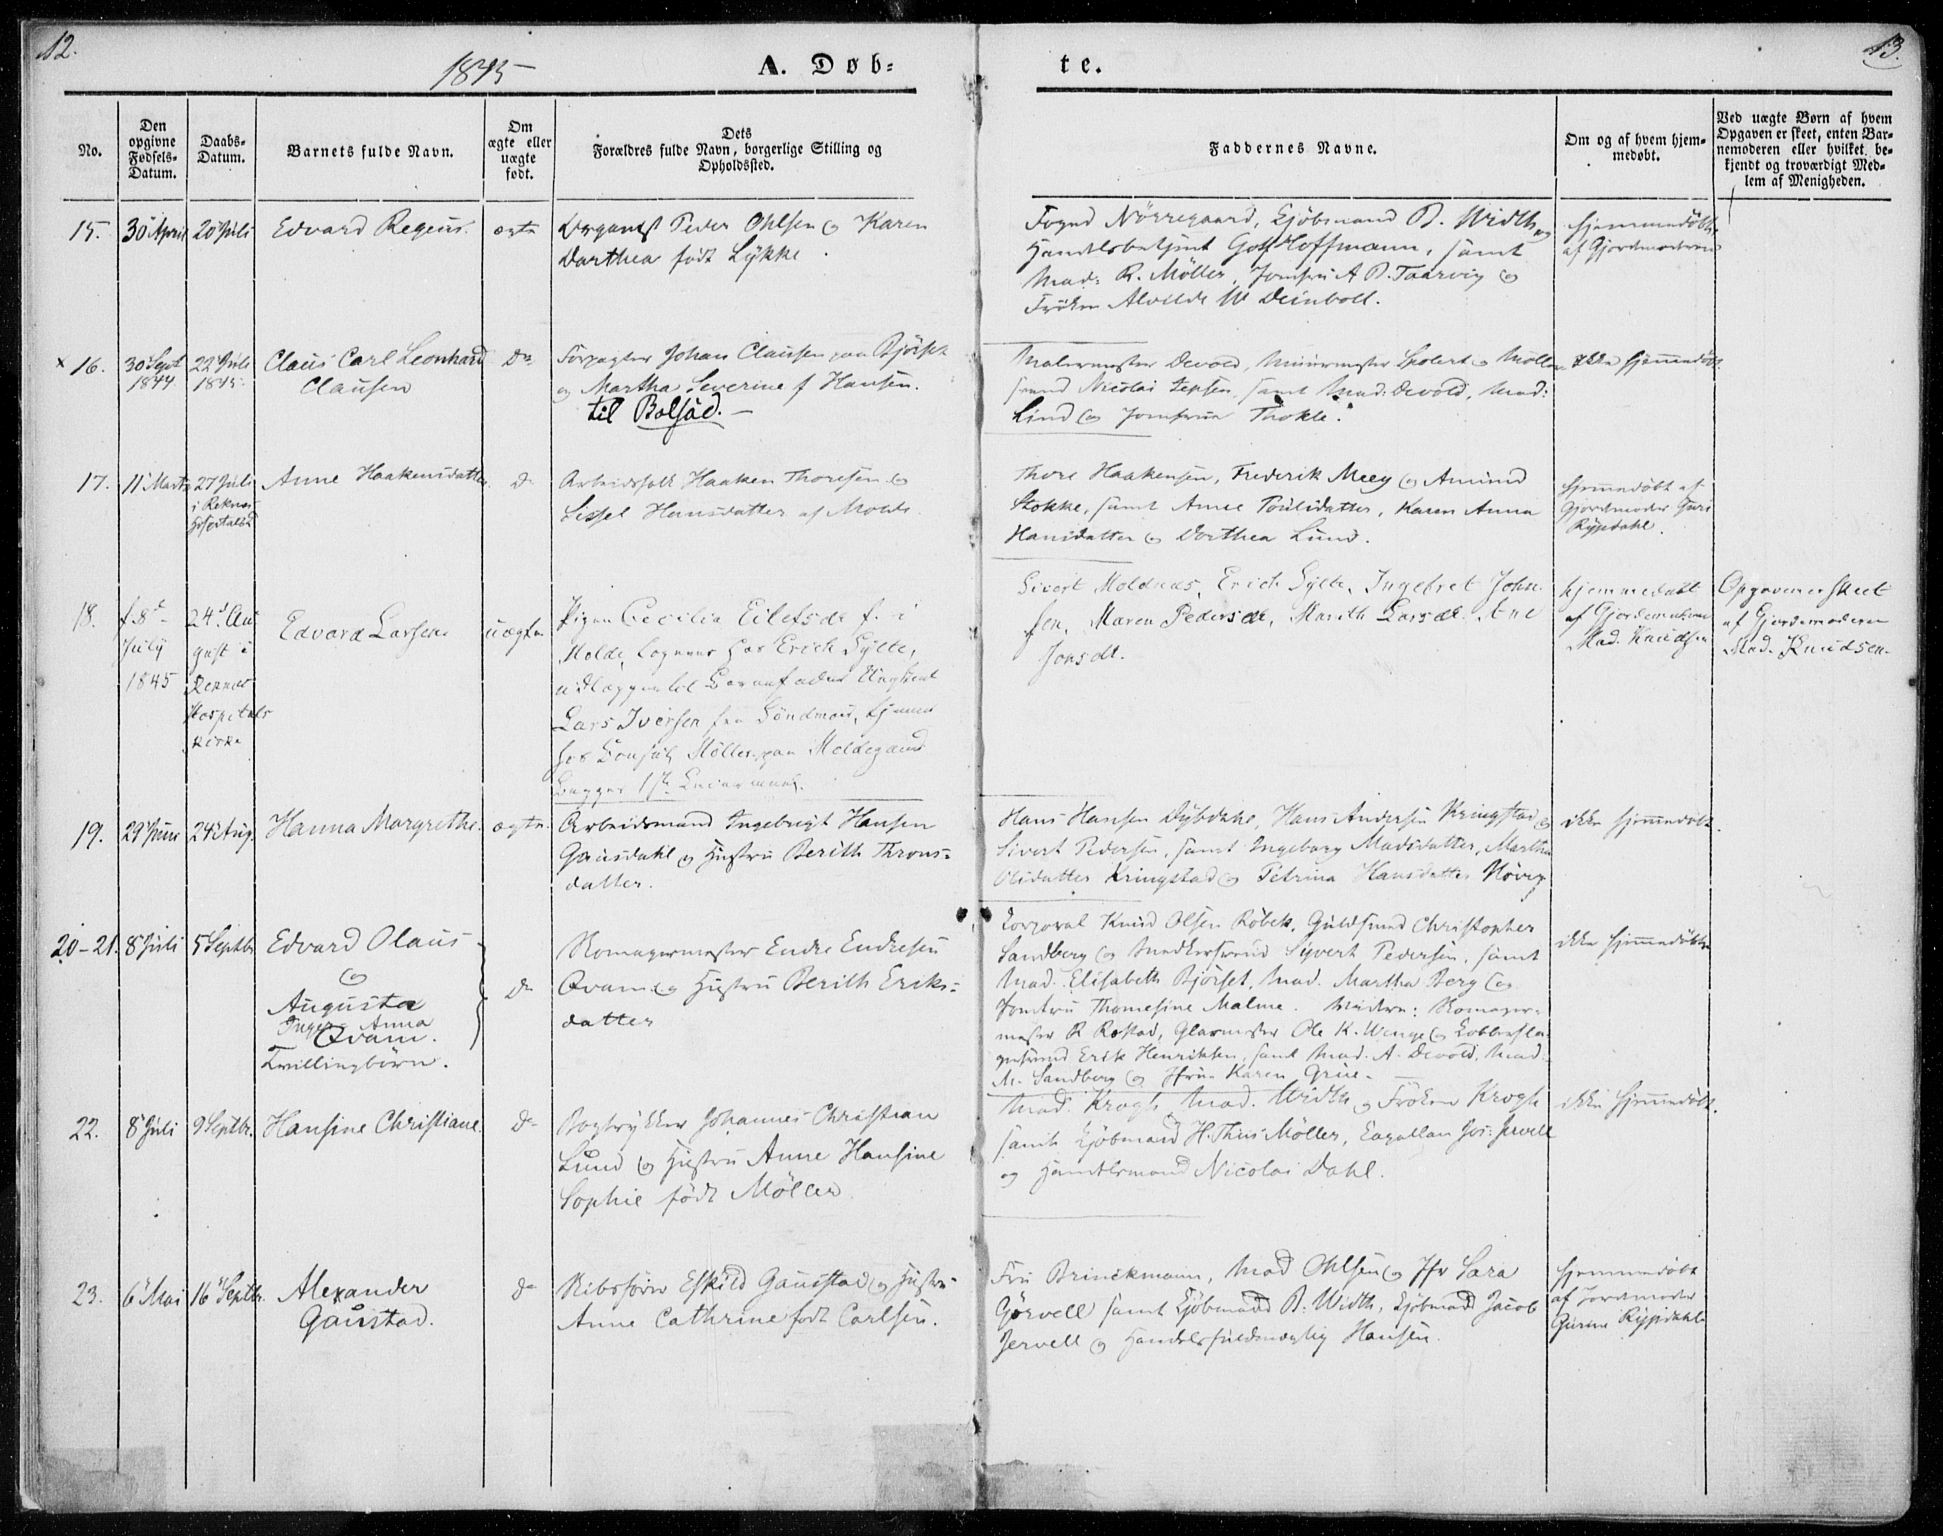 12.
1845
A. Døb-
te.
13.
No.
Den opgivne Fødsels-Datum.
Daabs-Datum.
Barnets fulde Navn.
Om ægte eller uægte født.
Dets Forældres fulde Navn, borgerlige Stilling og Opholdssted.
Faddernes Navne.
Om og af hvem hjemmedøbt.
Ved uægte Børn af hvem Opgaven er skeet, enten Barnemoderen eller hvilket bekjendt og troværdigt Medlem af Menigheden.
15. 30 April 20 Juli Edvard Regeus. ægte Organist Peder Ohlsen og Karen
Dorthea født Lykke.
Foged Nörregaard, Kjöbmand B. Width og
Handelsbetjent Hoffmann, samt
Mad: R. Möller, Jomfru A B. Taarvig og
Fröken Alvilde M Deinboll.
hjemmedöbt
af Gjordemoderen
x 16. 30 Sept 1844 22 Juli 1845. Claus Carl Leonhard
Clausen
Do Forpagter Johan Clausen paa Bjöiset
og Martha Severine f Hansen.
til Bolsöe. —
Malermester Devold, Muurmester
Nicolai Jepsen, samt Mad: Devold, Mad:
Lind og Jomfrue Thokle.
ikke hjemmedöbt
17. 11 Marts 27 Juli
i Reknes
Hospitalet
Anne Haakensdatter. Do Arbeidsfolk Haaken Thoresen og
Sissel Hansdatter af Molde
Thore Haakensen, Frederik Meey og Amund
Stokke, samt Anne Poulsdatter, Karen Anna
Hansdatter og Dorthea Lund.
hjemmedöbt af
Gjordemoder Guri
Rypdahl.
18. f. 8de
July
1845
24de Au
gust i
Reknes
Hospitals
kirke
Edvard Larsen uægte Pigen Cecilia Eilefsdr f. i
Molde, Logerer hos Erick Sylte,
udlægger til Barnefader Ungkarl
Lars Iversen fra Söndmör, tjener
hos Consul Möller paa Moldegaard
Begges 1ste Leiermaal.
Sivert Moldnæs, Erick Sylte, Ingebret John
sen, Maren Pedersdr, Marith Larsdr. Ane
Jonsdt.
hjemmedöbt
af Gjordemoderen
Mad. Knudsen
Opgaven er skeet
af Gjordemoderen
Mad. Knudsen.
19. 29 Juni 24 Aug. Hanna Margrethe. ægte. Arbeidsmand Ingebrigt Hansen
Gausdahl og Hustru Berith Throns-
datter.
Hans Hansen Dybdahl, Hans Andersen Kringstad og
Sivert Pedersen, samt Ingeborg Madsdatter, Martha
Olsdatter Kringstad og Petrina Hansdatter Növig
ikke hjemmedöbt.
20-21. 8 Juli 5 Septbr. Edvard Olaus
og
Augusta
Inger Anna
Qvam.
Tvillingbörn.
Do
Skomagermester Endre Endresen
Qvam og Hustru Berith Eriks-
datter
Corporal Knud Olsen Röbek, Guldsmed Christopher
Sandberg og Snedkersvend Syvert Pedersen, samt
Mad. Elisabeth Bjørset, Mad. Martha Berg og
Jomfru Thomesine Malme. Videre: Skomager-
mester R Rostad, Glarmester Ole K. Wenge og Kobbersla-
gersvend Erik Henriksen, samt Mad. A. Devold, Mad
M. Sandberg og Jfru Karen Grüe.
ikke hjemmedöbte
22. 8 Juli 9 Septbr. Hansine Christiane. Do Bogtrykker Johannes Christian
Lund og Hustru Anne Hansine
Sophie född Möller
Mad. Krogh, Mad. Width og Fröken Krogh
samt Kjöbmand H. Thiis Möller, Capellan Jos: Jervell
og Handelsmand Nicolai Dahl.
ikke hjemmedöbt.
23. 6 Mai 16 Septbr. Alexander
Gaustad.
Do Skibsförer Eskild Gaustad og Hustru
Anne Cathrine född Carlsen.
Fru Brinckmann, Mad Ohlsen og Jfr Sara
Görvell samt Kjöbmand B. Width, Kjöbmand Jacob
Jervell og Handelsfuldmægtig Hansen.
hjemmedöbt
af Jordemoder
Gurine Rypdahl